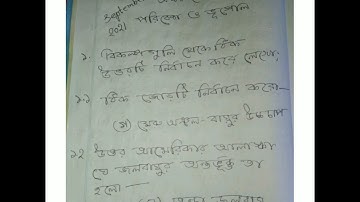 September
2021 পরিবেশ ও ভূগোল
১. বিকল্পগুলি থেকে ঠিক
উত্তরটি নির্বাচন করে লেখো:
১.১ ঠিক জোড়টি নির্বাচন করো—
(গ) মেরু অঞ্চল - বায়ুর উচ্চচাপ
১.২ উত্তর আমেরিকার আলাস্কা
যে জলবায়ুর অন্তর্ভুক্ত তা
হলো —
জলবায়ু